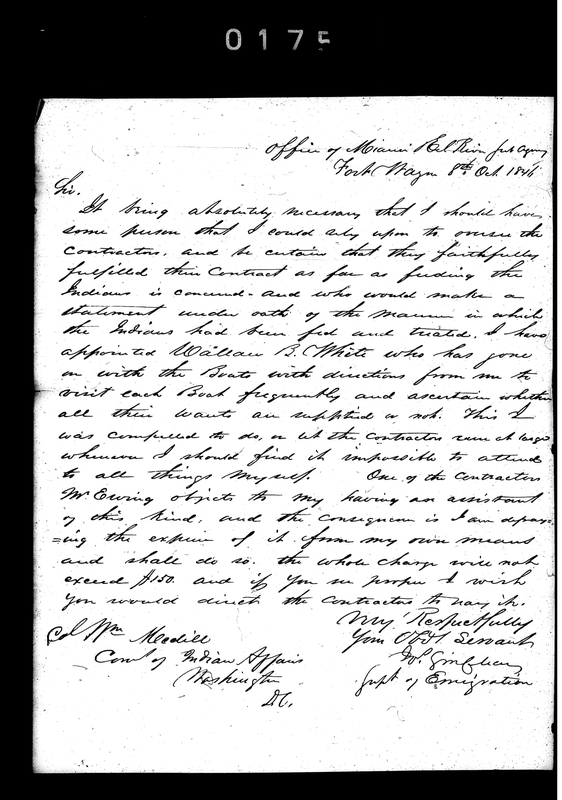 0175
Office of Miami & Eel River Sub Agency
Fort Wayne 8th Oct. 1846
Sir.
It being absolutely necessary that I should have
some person that I could rely upon to oversee the
Contractors. and be certain that they faithfully
fulfilled their Contract as far as feeding the
Indians is concerned - and who would make a
statement under oath of the manner in which
the Indians had been fed and treated. I have
appointed Wallace B. White who has gone
on with the Boats with directions from me to
visit each Boat frequently and ascertain whether
all their wants are supplied or not. This I
was compelled to do, or let the contractors run at large
whenever I should find it impossible to attend
to all things myself. One of the Contractors
Mr Ewing objects to my having an assistant
of this kind, and the consequence is I am
=ing the expense of it from my own means
and shall do so. the whole charge will not
exceed $150. and if you see proper I wish
you would direct the Contractors to pay it.
Very Respectfully
Your Obdt Servant
Jos. Sinclear
Supt of Emigration
Col Wm Medill
Com of Indian Affairs
Washington
DC.